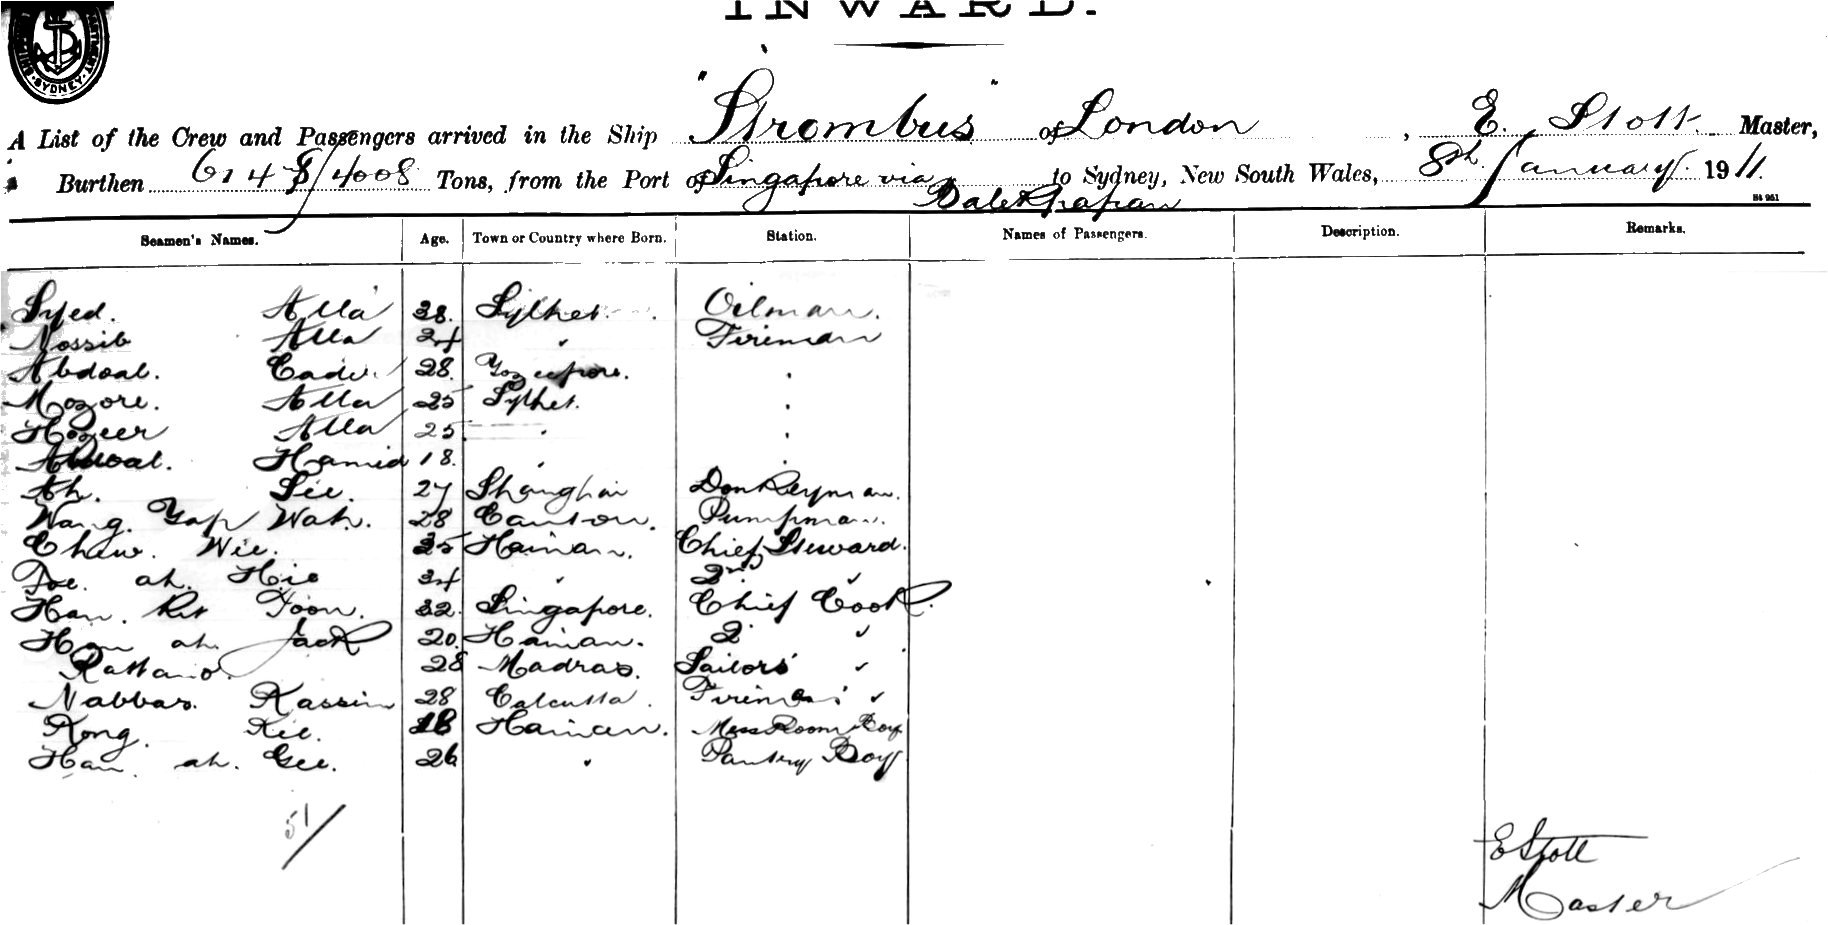 INWARD.
SYDNEY
A List of the Crew and Passengers arrived in the Ship "Strombus" of London, E. Stott. Master,
Burthen /4008 Tons, from the Port of Singapore via Balekpapan to Sydney, New South Wales, 8th January. 1911.
Seamen's Names. Age. Town or Country where Born. Station. Names of Passengers. Description. Remarks.
Syed. Alla 38. Sylhet. Oilman.
Nossib Alla 24 " Fireman
Abdoal. Cader. 28. "
Mozore. Alla 25 Sylhet. "
Hozeer Alla 25. " "
Abdoal. Hamid 18. " "
Ah. Sie. 27 Shanghai Donkeyman.
Wang. Yap Wah. 28 Canton. Pumpman.
Chaw. Wee. 35 Hainan. Chief Steward.
ah. Hie 34 " 2nd "
Han. Toon. 32. Singapore. Chief Cook.
Han ah. Jack 20. Hainan. 2 "
28 Madras. Sailors' "
Nabbas. Kassim 28 Calcutta. Firemens' "
Kong. Kee. 18 Hainan. Mess Room Boy
Han ah. Gee. 26 " Pantry Boy
51/
E Stott
Master